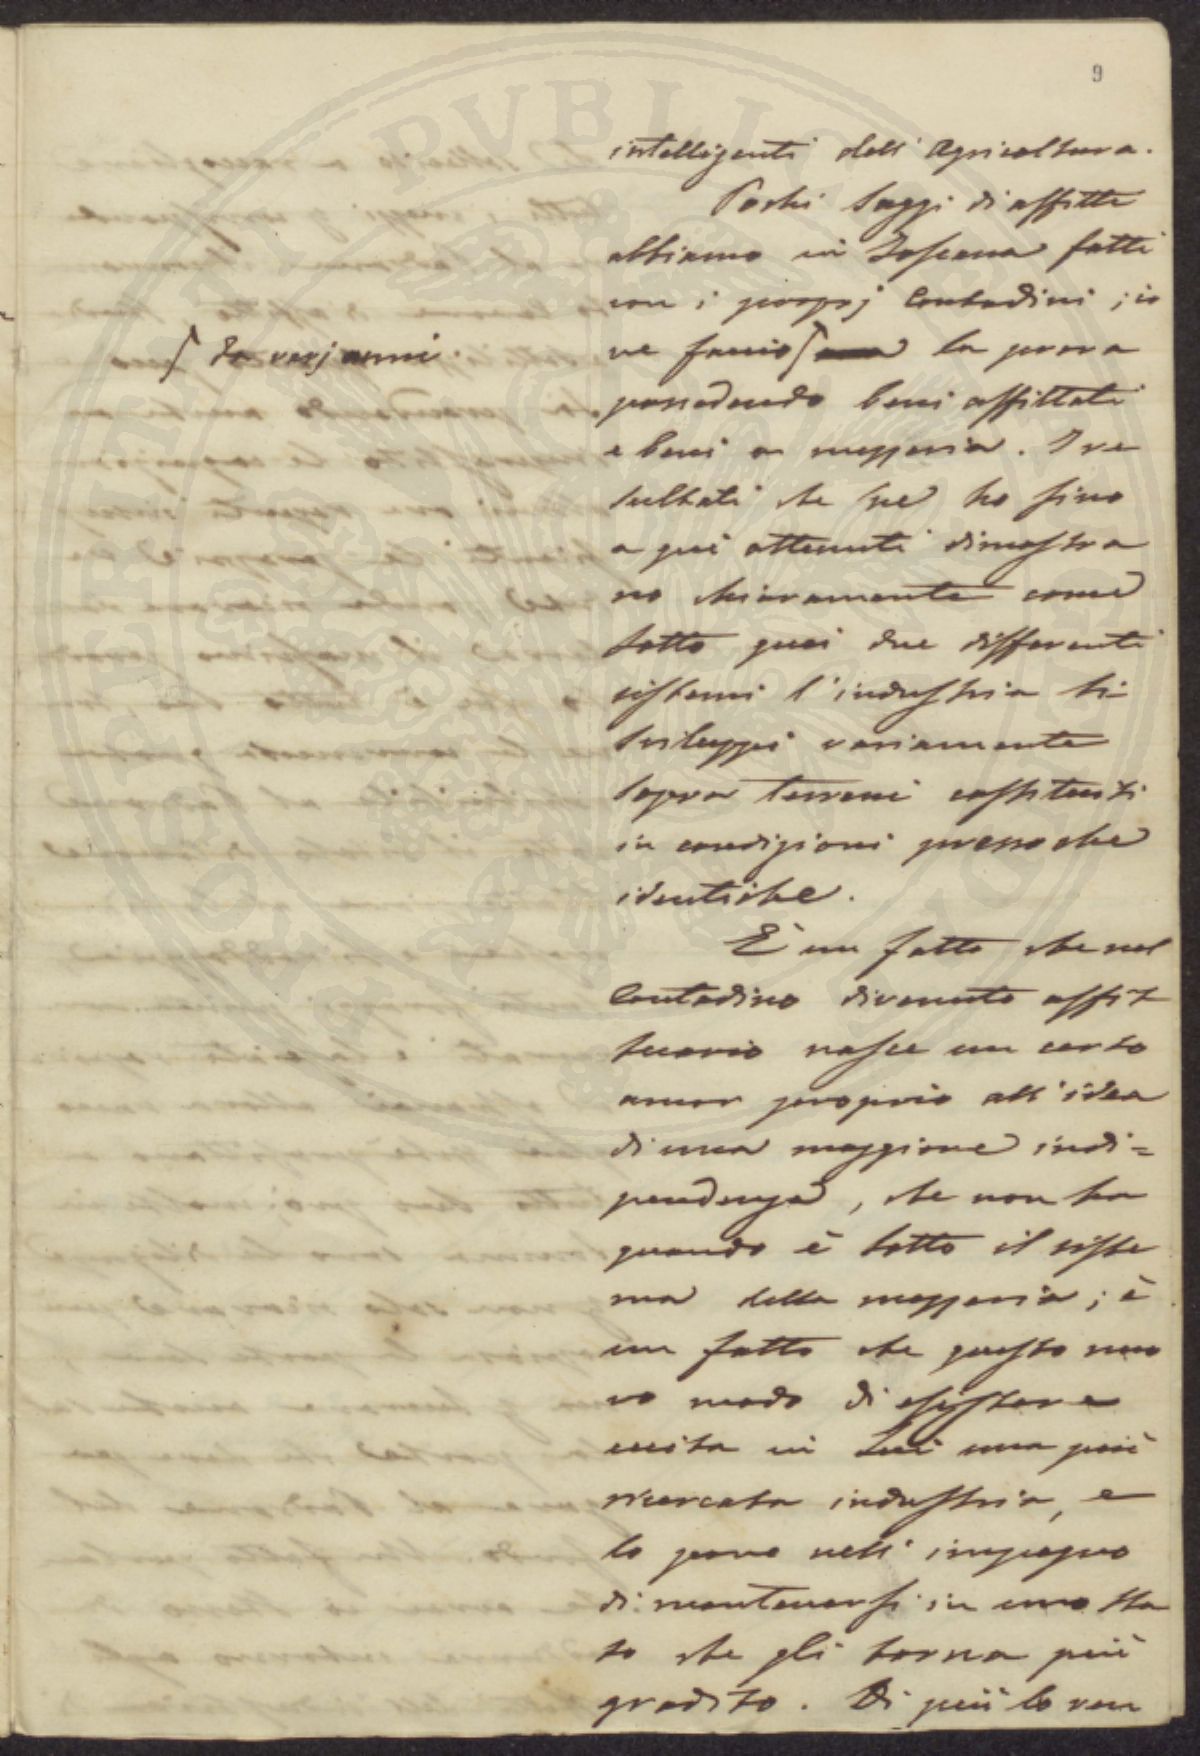 9
intelligenti dell' Agricoltura.
Pochi Saggi di affitto
abbiamo in Toscana fatti
con i proprj Contadini; io
ne faccio ſ la prova
ſ da varj anni.
possedendo beni affittati
e beni a mezzeria. I re
sultati che ne ho fino
a qui ottenuti dimostra
no chiaramente come
sotto quei due differenti
sistemi l'industria si
sviluppi variamente
sopra terreni costituiti
in condizioni pressoche
identiche.
È un fatto che nel
Contadino divenuto affit
tuario nasce un certo
amor proprio all'idea
di una maggiore indi=
pendenza, che non ha
quando è sotto il siste
ma della mezzeria; è
un fatto che questo nuo
vo modo di esistere
eccita in Lui una più
ricercata industria, e
lo pone nell' impegno
di mantenersi in uno sta
to che gli torna più
gradito. Di più lo ren